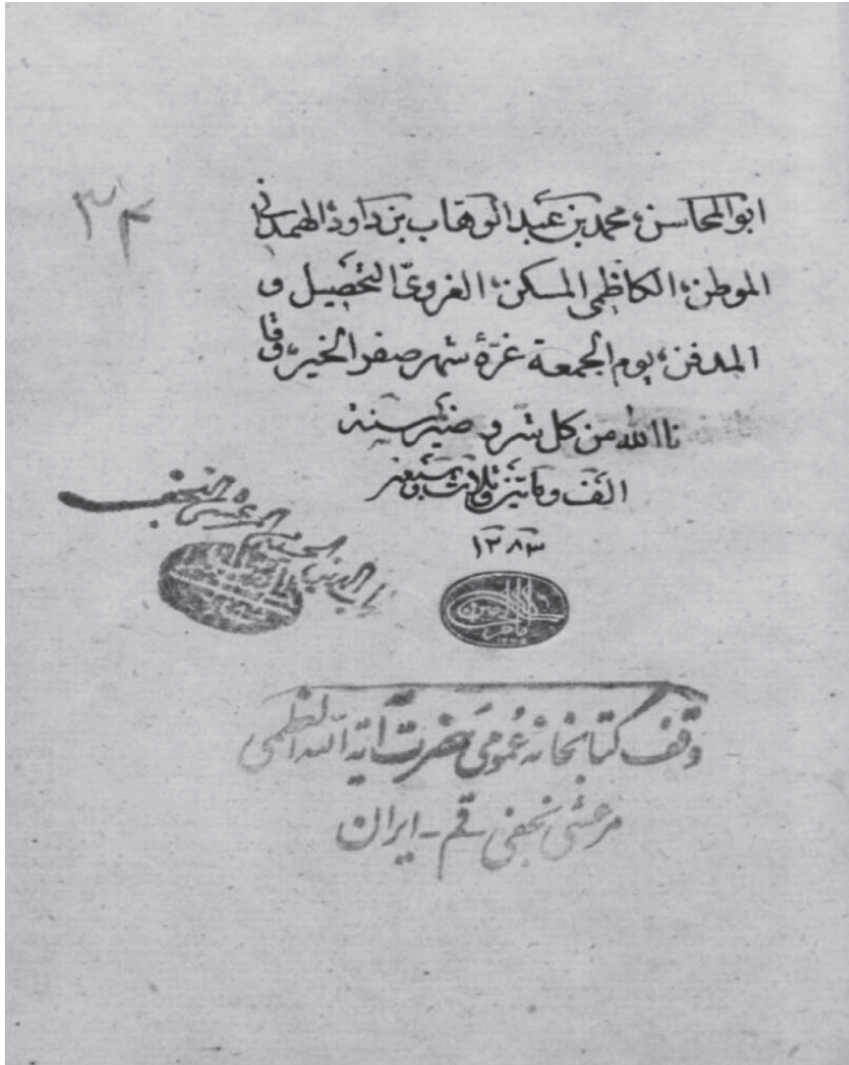 ۳۴
ابوالمحاسن، محمد بن عبدالوهاب بن داود الهمدانی
الموطن، الکاظمی المسکن، الغروی التحصیل و
المدفن، یوم الجمعة غرّة شهر صفر الخیر، وقا
نا الله من کل شر و ضیر سنة
الف و مأتین و ثلاث
۱۲۸۳
شهاب الدین الحسینی المرعشی النجفی
وقف کتابخانه عمومی حضرت آیة الله العظمی
مرعشی نجفی قم - ایران